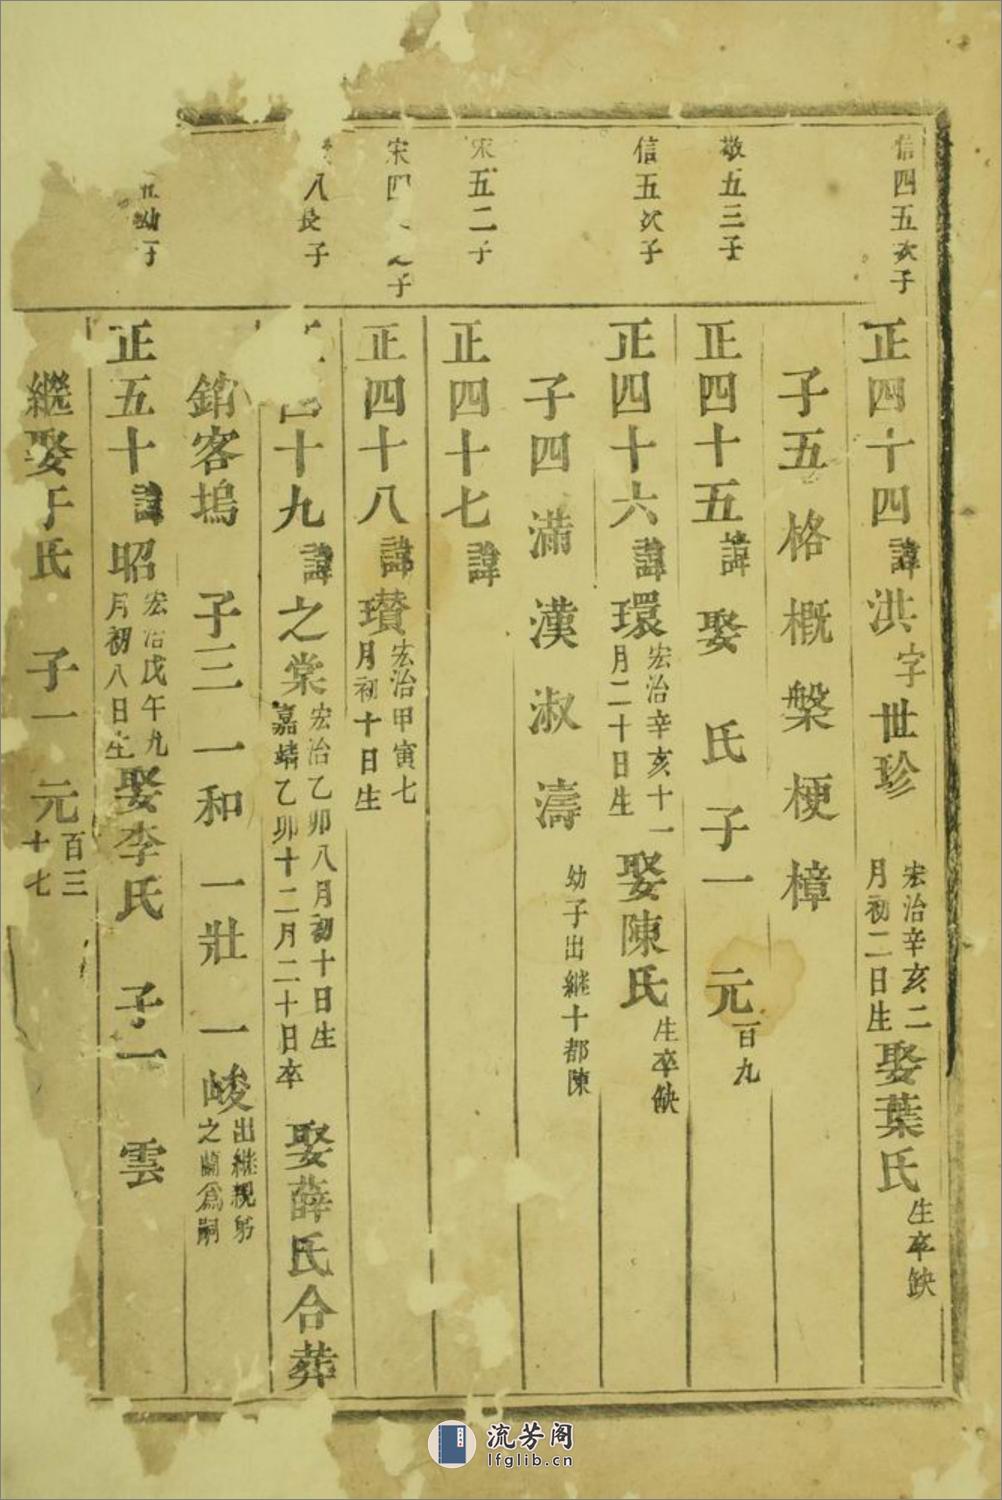 信四五次子
正四十四諱洪字世珍
宏治辛亥二
月初二日生
娶葉氏
生卒缺
子五 格 概 槃 梗 樟
敬五三子
正四十五諱 娶 氏 子一 元
百九
信五次子
正四十六諱環
宏治辛亥十一
月二十日生
娶陳氏
生卒缺
子四 滿 漢 淑 濤
幼子出繼十都陳
宋五二子
正四十七諱
宋四 之子
正四十八諱瓚
宏治甲寅七
月初十日生
八長子
十九諱之棠
宏治乙卯八月初十日生
嘉靖乙卯十二月二十日卒
娶薛氏合葬
銷客塢 子三 一和 一壯 一峻
出繼親房
之蘭為嗣
五幼子
正五十諱昭
宏治戊午九
月初八日生
娶李氏 子一 雲
繼娶于氏 子一 元
百三
十七
流芳阁
lfglib.cn